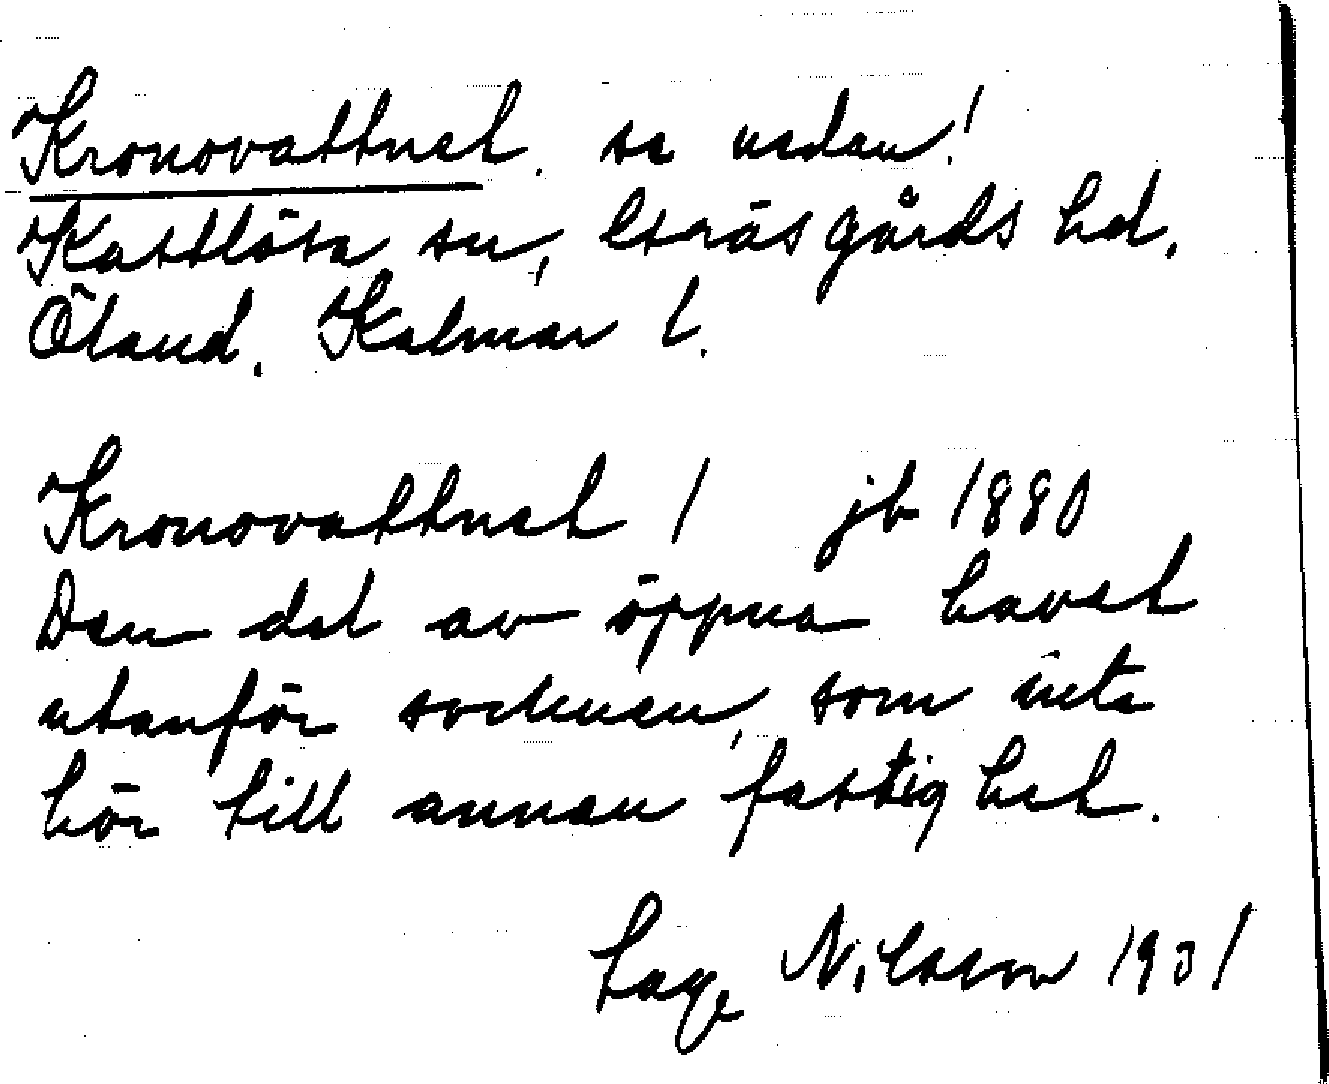 Kronovattnet. se nedan!
Kastlösa sn, Gräsgårds hd.
Öland. Kalmar l.
Kronovattnet 1 jb 1880
Den del av öppna havet
utanför socknen, som inte
hör till annan fastighet.
Lage Nilsson 1931